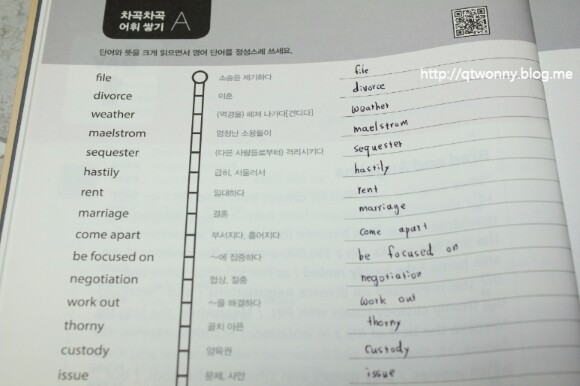 차곡차곡
어휘 쌓기 A
단어와 뜻을 크게 읽으면서 영어 단어를 정성스레 쓰세요.
http://qtwonny.blog.me
file 소송을 제기하다 file
divorce 이혼 divorce
weather (역경을) 헤쳐 나가다[견디다] weather
maelstrom 엄청난 소용돌이 maelstrom
sequester (다른 사람들로부터) 격리시키다 sequester
hastily 급히, 서둘러서 hastily
rent 임대하다 rent
marriage 결혼 marriage
come apart 부서지다, 흩어지다 come apart
be focused on ~에 집중하다 be focused on
negotiation 협상, 절충 negotiation
work out ~을 해결하다 work out
thorny 골치 아픈 thorny
custody 양육권 custody
issue 문제, 사안 issue